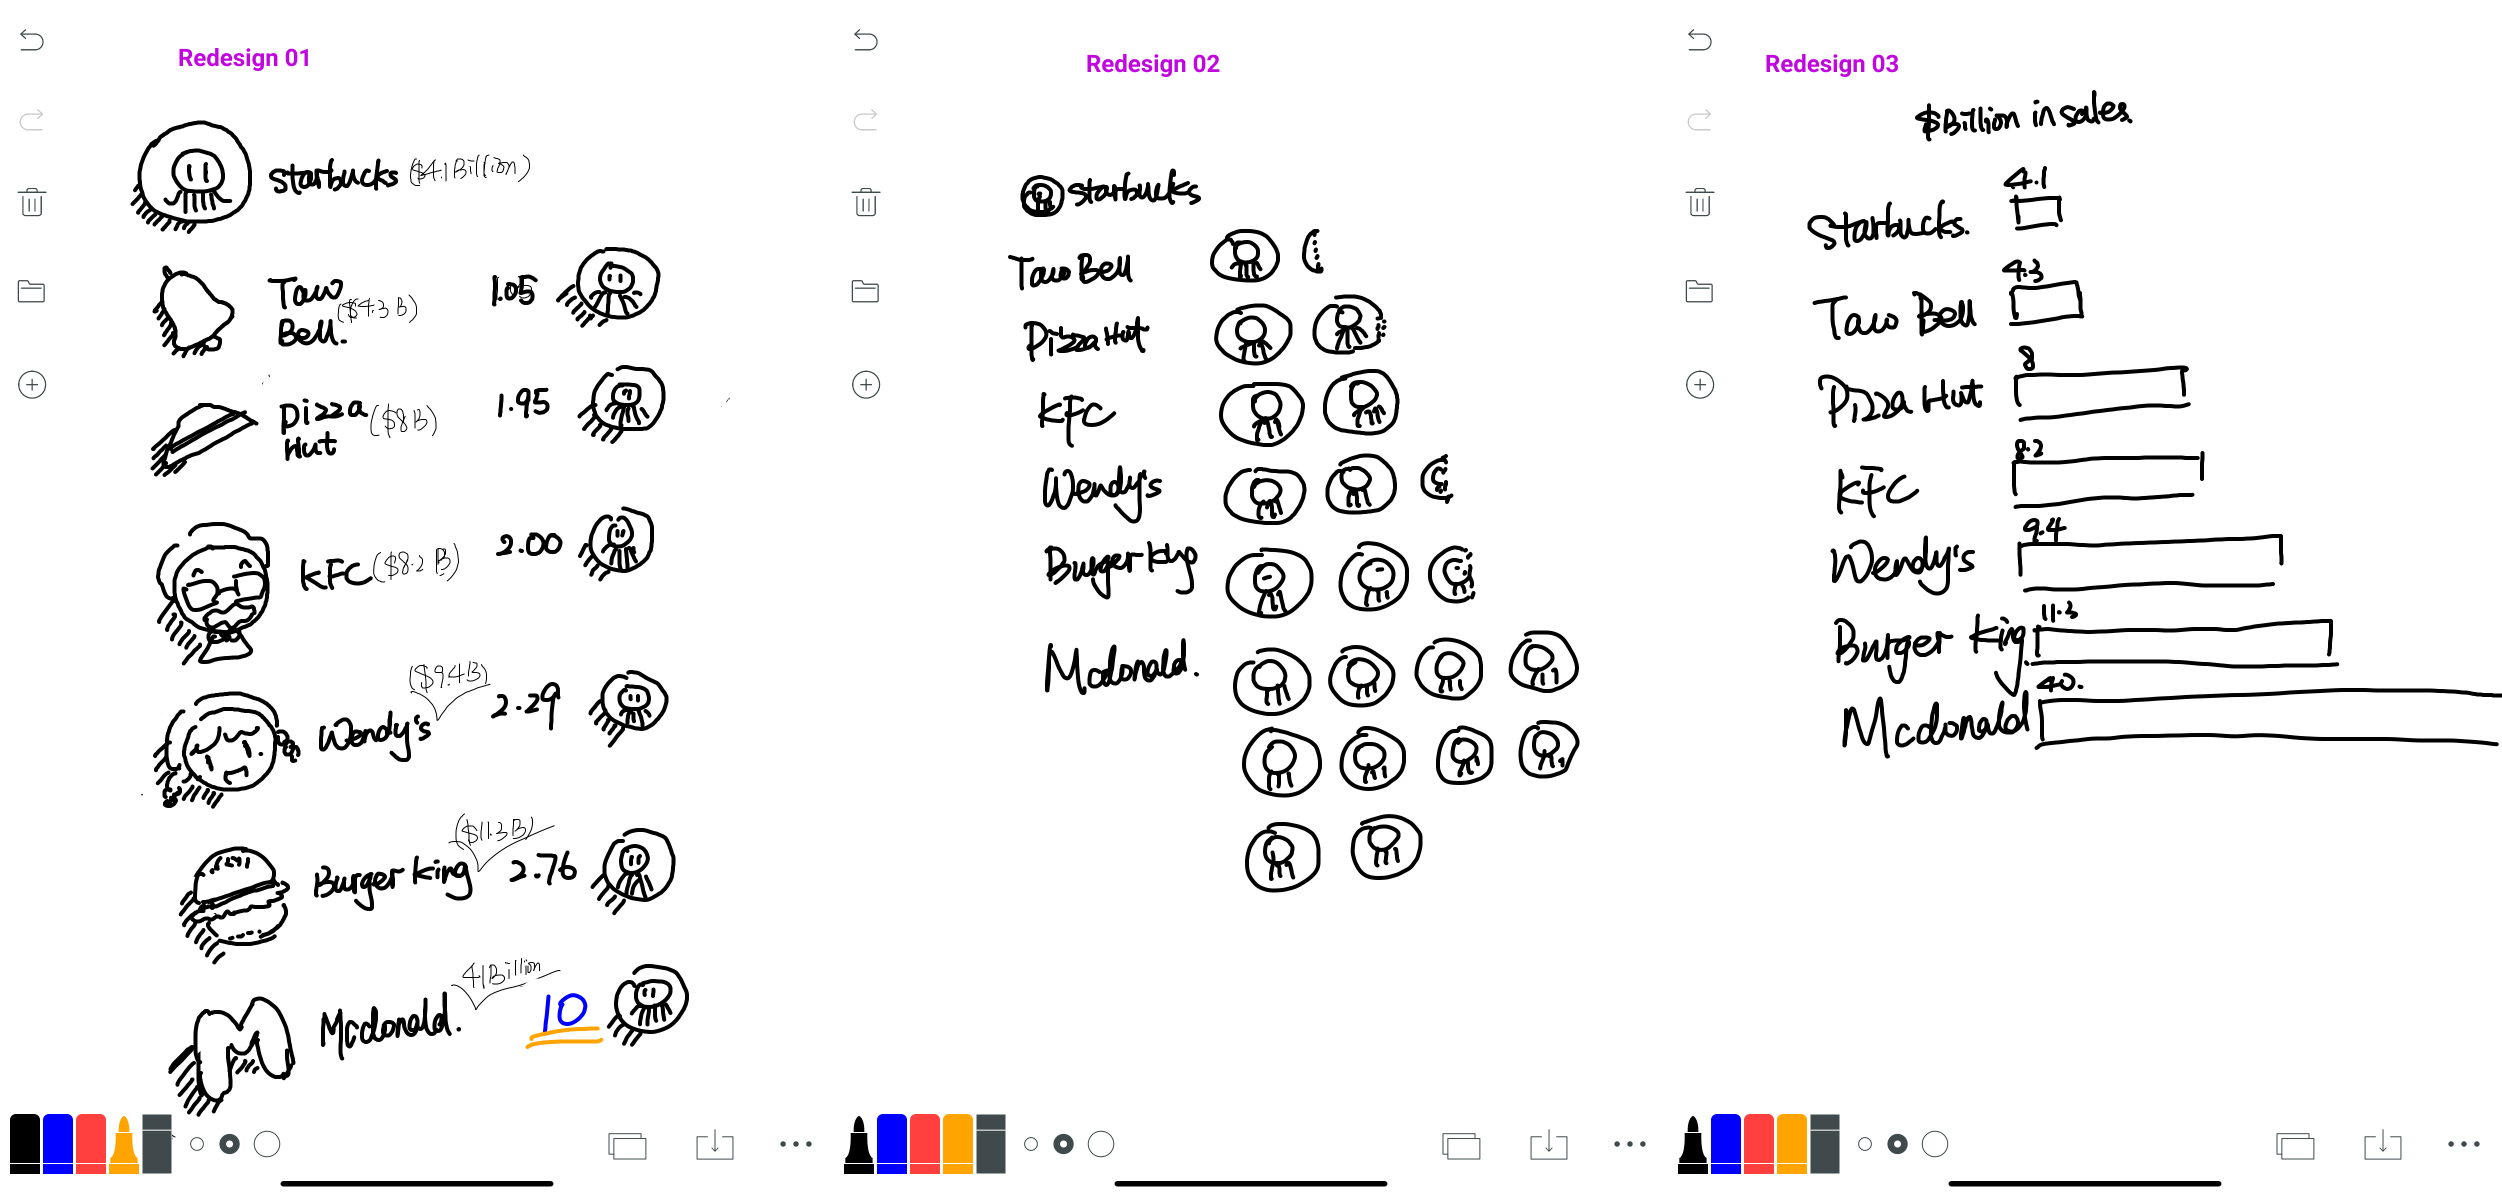 Redesign 01
starbucks ($4.1 Billion)
Taco Bell. ($4.3 B) 1.05
pizza Hut ($8 B) 1.95
KFC ($8.2 B) 2.00
($9.4B)
Wendy's 2.29
($11.3B)
Burger king 2.76
41Billion
Mcdonald. 10
Redesign 02
starbucks
Taco Bell
Pizza Hut
KFC
Wendy's
Burger king
Mcdonald.
Redesign 03
$Billion in sales.
4.1
Starbucks.
4.3
Taco Bell
8
Pizza Hut
8.2
KFC
9.4
Wendy's
11.3
Burger king
40.
Mcdonald